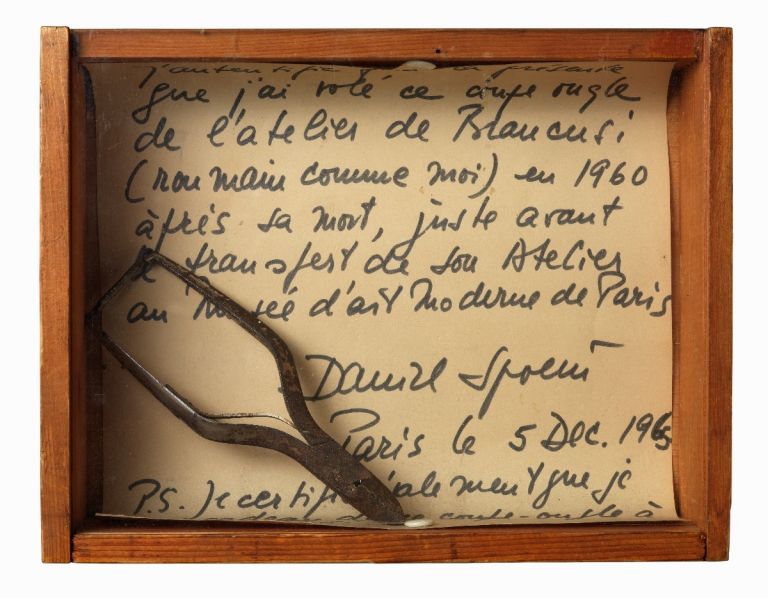 j'autentifie la présente
que j'ai volé ce coupe ongle
de l'atelier de Brancusi
(roumain comme moi) en 1960
àprés sa mort, juste avant
le transfert de son Atelier
au Musée d'art Moderne de Paris
Daniel Spoerri
Paris le 5 Dec. 1965
P.S. Je certifie également que je
coupe-ongle à